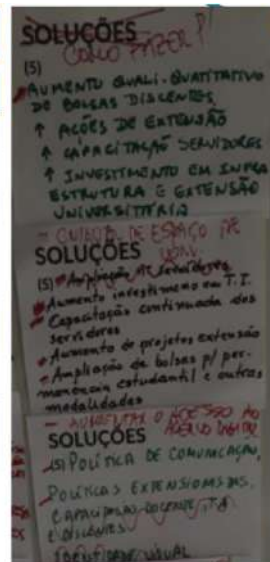 SOLUÇÕES
COMO FAZER?
(5)
AUMENTO QUALI-QUANTITATIVO
DE BOLSAS DISCENTES
↑ AÇÕES DE EXTENSÃO
↑ CAPACITAÇÃO SERVIDORES
↑ INVESTIMENTO EM INFRA
ESTRUTURA E EXTENSÃO
UNIVERSITÁRIA
- DE ESPAÇO
SOLUÇÕES
(5) Ampliação de servidores
Aumento investimeno em T.I.
- Capacitação continuada dos
servidores
- Aumento de projetos extensão
- Ampliação de bolsas p/ per-
manencia estudantil e outras
modalidades
- AUMENTAR O ACESSO AO
ACERVO DIGITAL
SOLUÇÕES
(5) POLÍTICA DE COMUNICAÇÃO,
POLÍTICAS EXTENSIONISTAS,
CAPACITAÇÃO DOCENTE, T.A
E DISCENTES
IDENTIDADE VISUAL